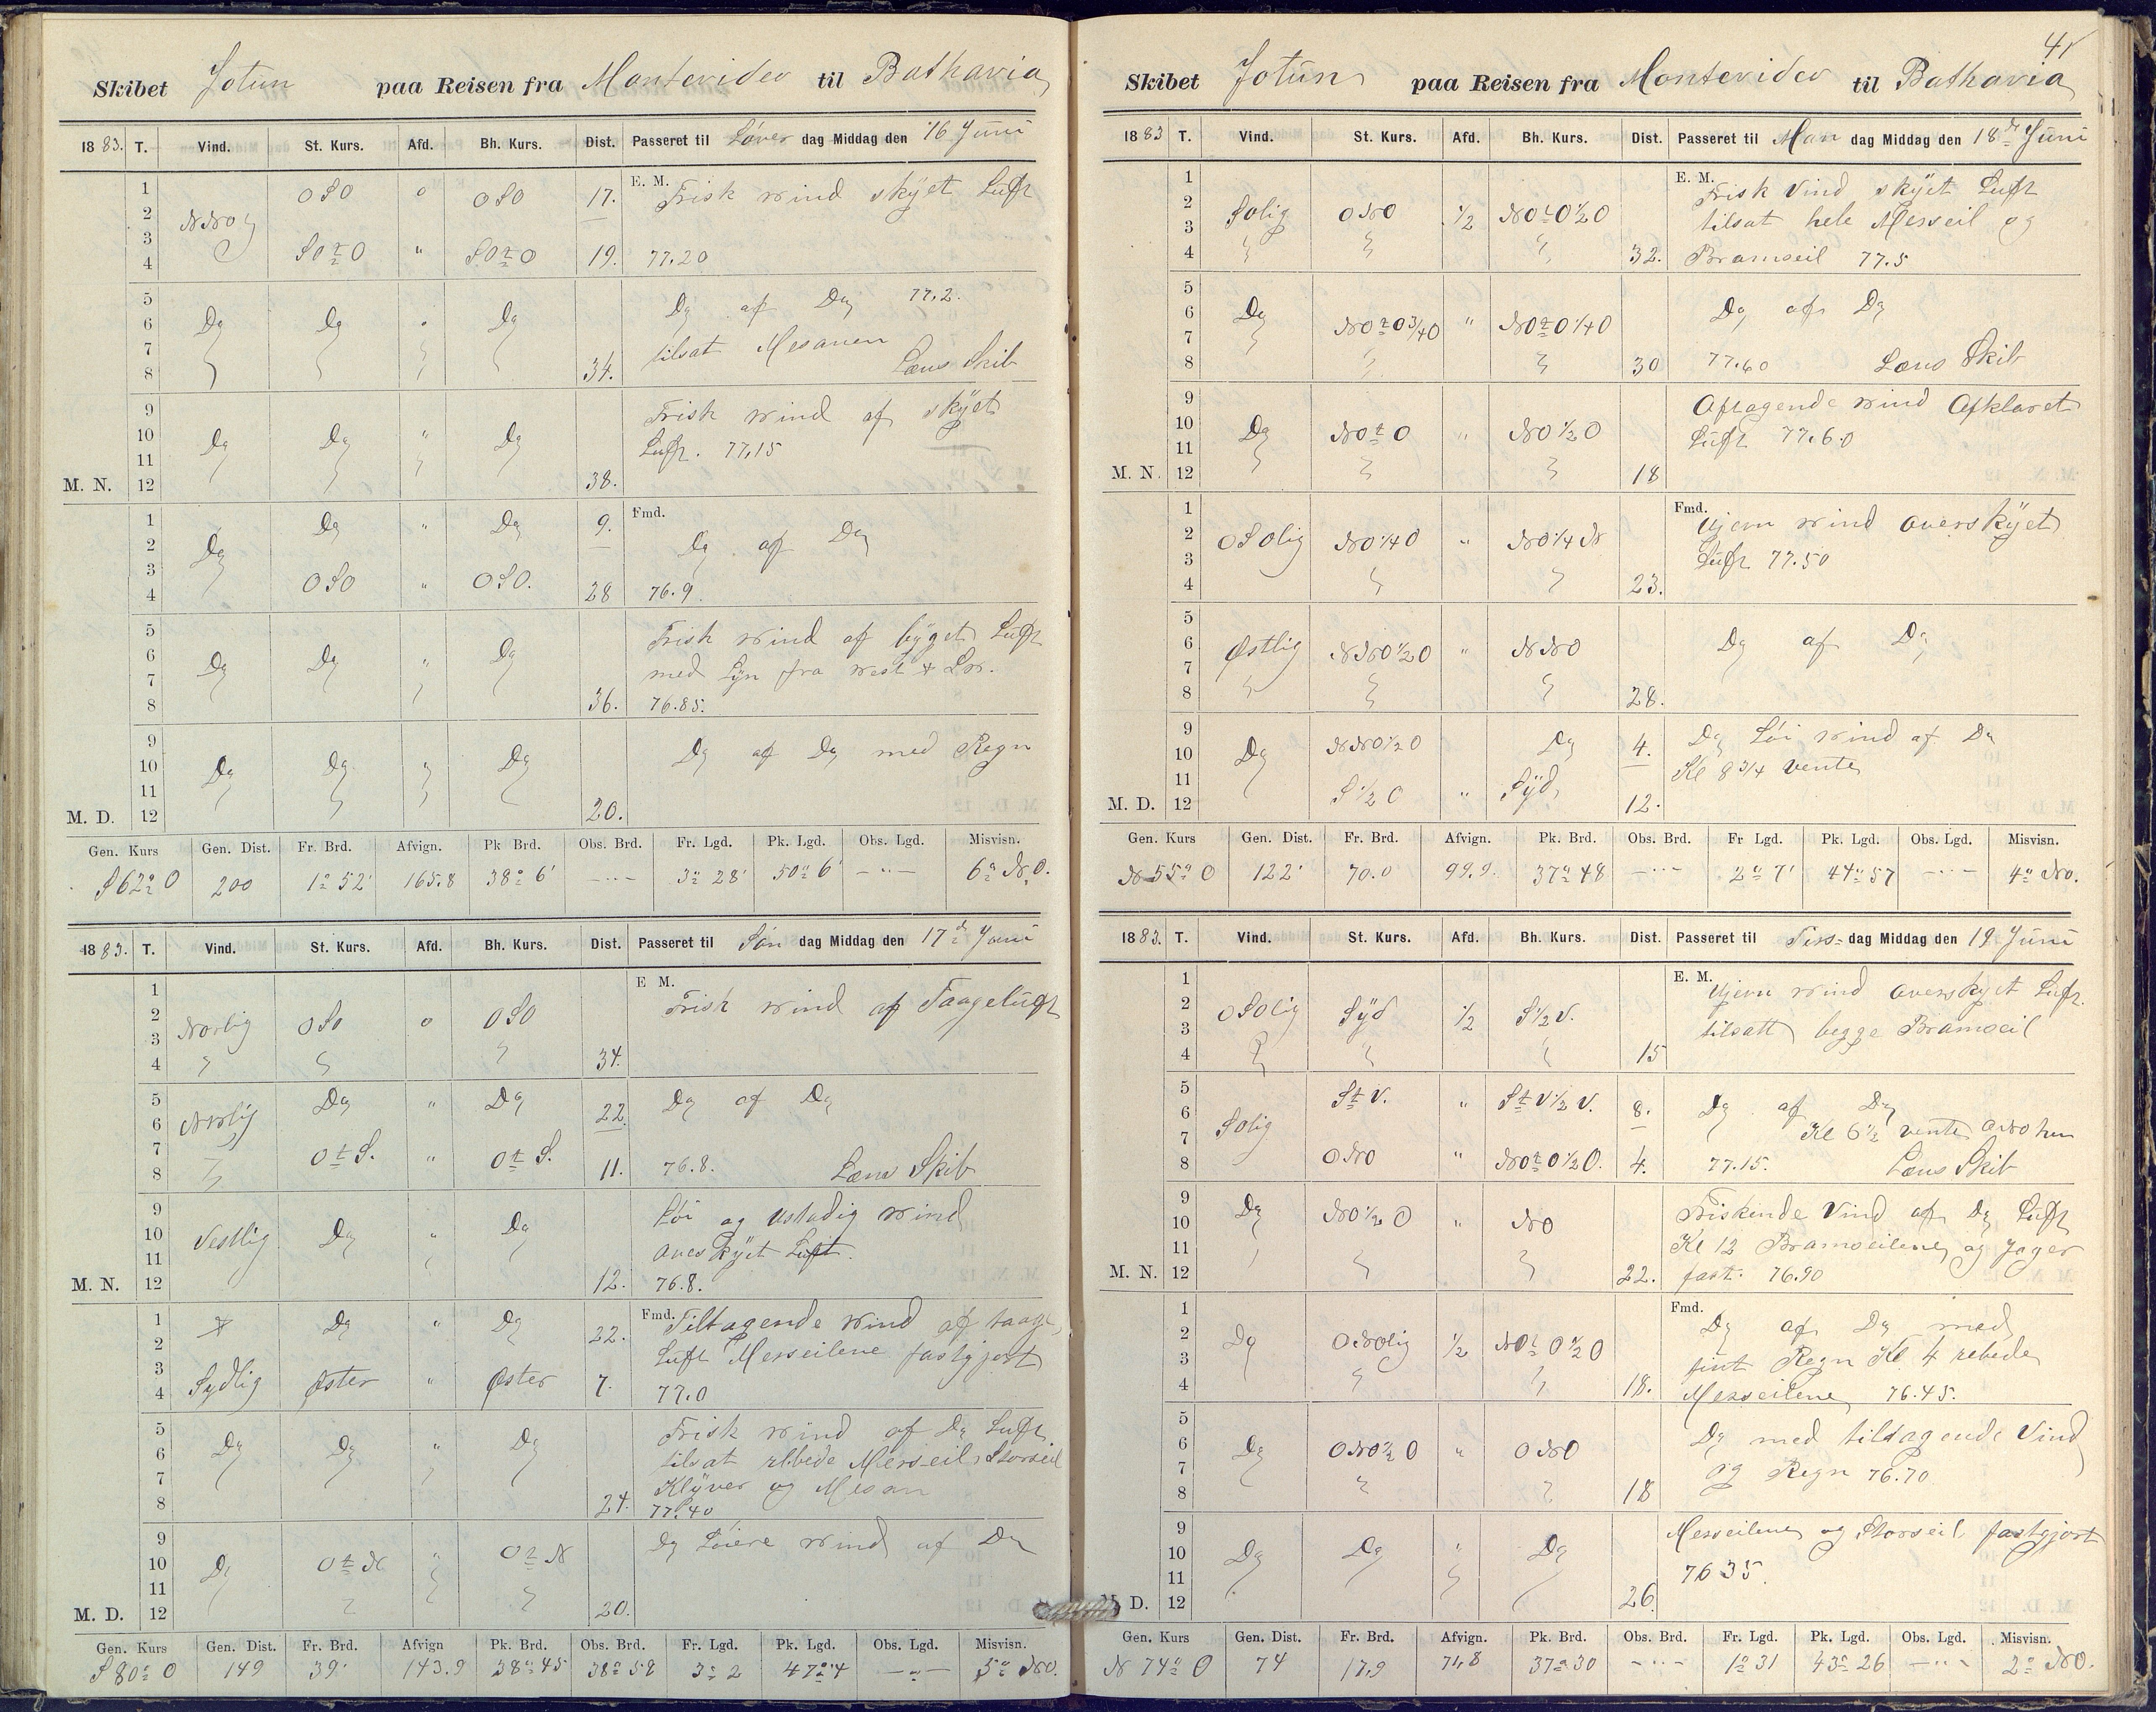 Skibet Jotun paa Reisen fra Montevideo til Bathavia
1883. T. Vind. St. Kurs. Afd. Bh. Kurs. Dist. Passeret til Löver dag Middag den 16 Juni
1 OSO o OSO 17. E. M. Frisk wind skyet Luft
2 NNO
3
4 SO t O " SO t O 19. 77.20
5 Do af Do 77.2.
6 Do Do " Do
7 tilsat Mesanen
8 34. Læns Skib
9 Frisk wind af skyet
10 Do Do " Do Luft. 77,15
11
M. N. 12 38.
1 Do " Do 9. Fmd.
2 Do Do af Do
3
4 OSO " OSO. 28 76.9
5 Frisk wind af byget Luft
6 Do Do " Do med Lyn fra west
7
8 36. 76.85.
9 Do af Do med Regn
10 Do Do " Do
11
M. D. 12 20.
Gen. Kurs Gen. Dist. Fr. Brd. Afvign. Pk Brd. Obs. Brd. Fr. Lgd. Pk. Lgd. Obs. Lgd. Misvisn.
S 62° O 200 1° 52' 165.8 38° 6' — " — 3° 28' 50° 6' — " — 6° NO.
1883. T. Vind. St. Kurs. Afd. Bh. Kurs. Dist. Passeret til Søn dag Middag den 17d Juni
1 E M.
2 Norlig OSO o OSO Frisk wind af Taageluft
3
4 34.
5 Do " Do 22. Do af Do
6 NNlig
7
8 O t S. " O t S. 11. 76.8. Læns Skib
9 Löi og ustadig wind
10 Vestlig Do " Do overskyet Luft.
11
M. N. 12 12. 76.8.
1 Do " Do 22. Fmd. Tiltagende wind af taage
2 Luft Merseilene fastgjort
3
4 Sydlig Øster " Øster 7. 77.0
5 Frisk wind af Do Luft
6 Do Do " Do tilsat rebede Merseil, Storseil
7 Klyver og Mesan
8 24. 77.40
9 Do Löiere wind af Do
10 Do O t N " O t N
11
M. D. 12 20.
Gen. Kurs Gen. Dist. Fr. Brd. Afvign Pk. Brd. Obs. Brd. Fr. Lgd. Pk. Lgd. Obs. Lgd. Misvisn.
S 80° O 149 39' 143.9 38° 45 38° 58 3° 2 47° 4 — " — 5° NO.
41
Skibet Jotun paa Reisen fra Montevideo til Bathavia
1883 T. Vind. St. Kurs. Afd. Bh. Kurs. Dist. Passeret til Man dag Middag den 18de Juni
1 E. M. Frisk Vind skyet Luft
2 Solig ONO 1/2 NO t O 1/2 O
3 tilsat hele Merseil og
4 32. Bramseil 77.5
5 Do af Do
6 Do NO t O 3/4 O " NO t O 1/4 O
7
8 30 77.60 Læns Skib
9 Aftagende wind Afklaret
10 Do NO t O " NO 1/2 O Luft 77.60
11
M. N. 12 18
1 Fmd. Ujevn wind overskyet
2 OSOlig NO 1/4 O " NO 1/4 N
3 Luft 77.50
4 23.
5
6 Østlig NNO 1/2 O " NNO Do af Do
7
8 28.
9 NNO 1/2 O Do 4. Do Löi wind af Do
10 Do Kl 8 3/4 vente
11
M. D. 12 S 1/2 O " Syd 12.
Gen. Kurs Gen. Dist. Fr. Brd. Afvign. Pk. Brd. Obs. Brd. Fr Lgd. Pk. Lgd. Obs. Lgd. Misvisn.
N 55° O 122' 70.0 99.9. 37° 48 — " — 2° 7' 44° 57 — " — 4° NO.
1883. T. Vind. St. Kurs. Afd. Bh. Kurs. Dist. Passeret til Tirs- dag Middag den 19 Juni
1 E. M. Ujevn wind overskyet Luft.
2 OSOlig Syd 1/2 S 1/2 V.
3 tilsatt begge Bramseil
4 15
5 S t V. " S t V 1/2 V. 8. Do af Do
6 Solig Kl 6 1/2 vente
7
8 ONO " NO t O 1/2 O. 4. 77.15. Læns Skib
9 Do NO 1/2 O " NO Friskende Vind af Do Luft
10 Kl 12 Bramseilene og Jager
11
M. N. 12 22. fast. 76.90
1 Fmd. Do af Do med
2 Do ONOlig 1/2 NO t O 1/2 O
3 fint Regn Kl 4 rebede
4 18. Merseilene 76.45.
5 Do med tiltagende Vind
6 Do ONO 1/2 O " ONO
7 og Regn 76.70
8 18
9 Merseilene og Storseil fastgjort
10 Do Do " Do 76 35.
11
D. 12 26.
Gen. Kurs Gen. Dist. Fr. Brd. Afvign. Pk. Brd. Obs. Brd. Fr. Lgd. Pk. Lgd. Obs. Lgd. Misvisn.
N 74° O 74 17,9 71,8 37° 30 — " — 1° 31 43° 26 — " — 2° NO.